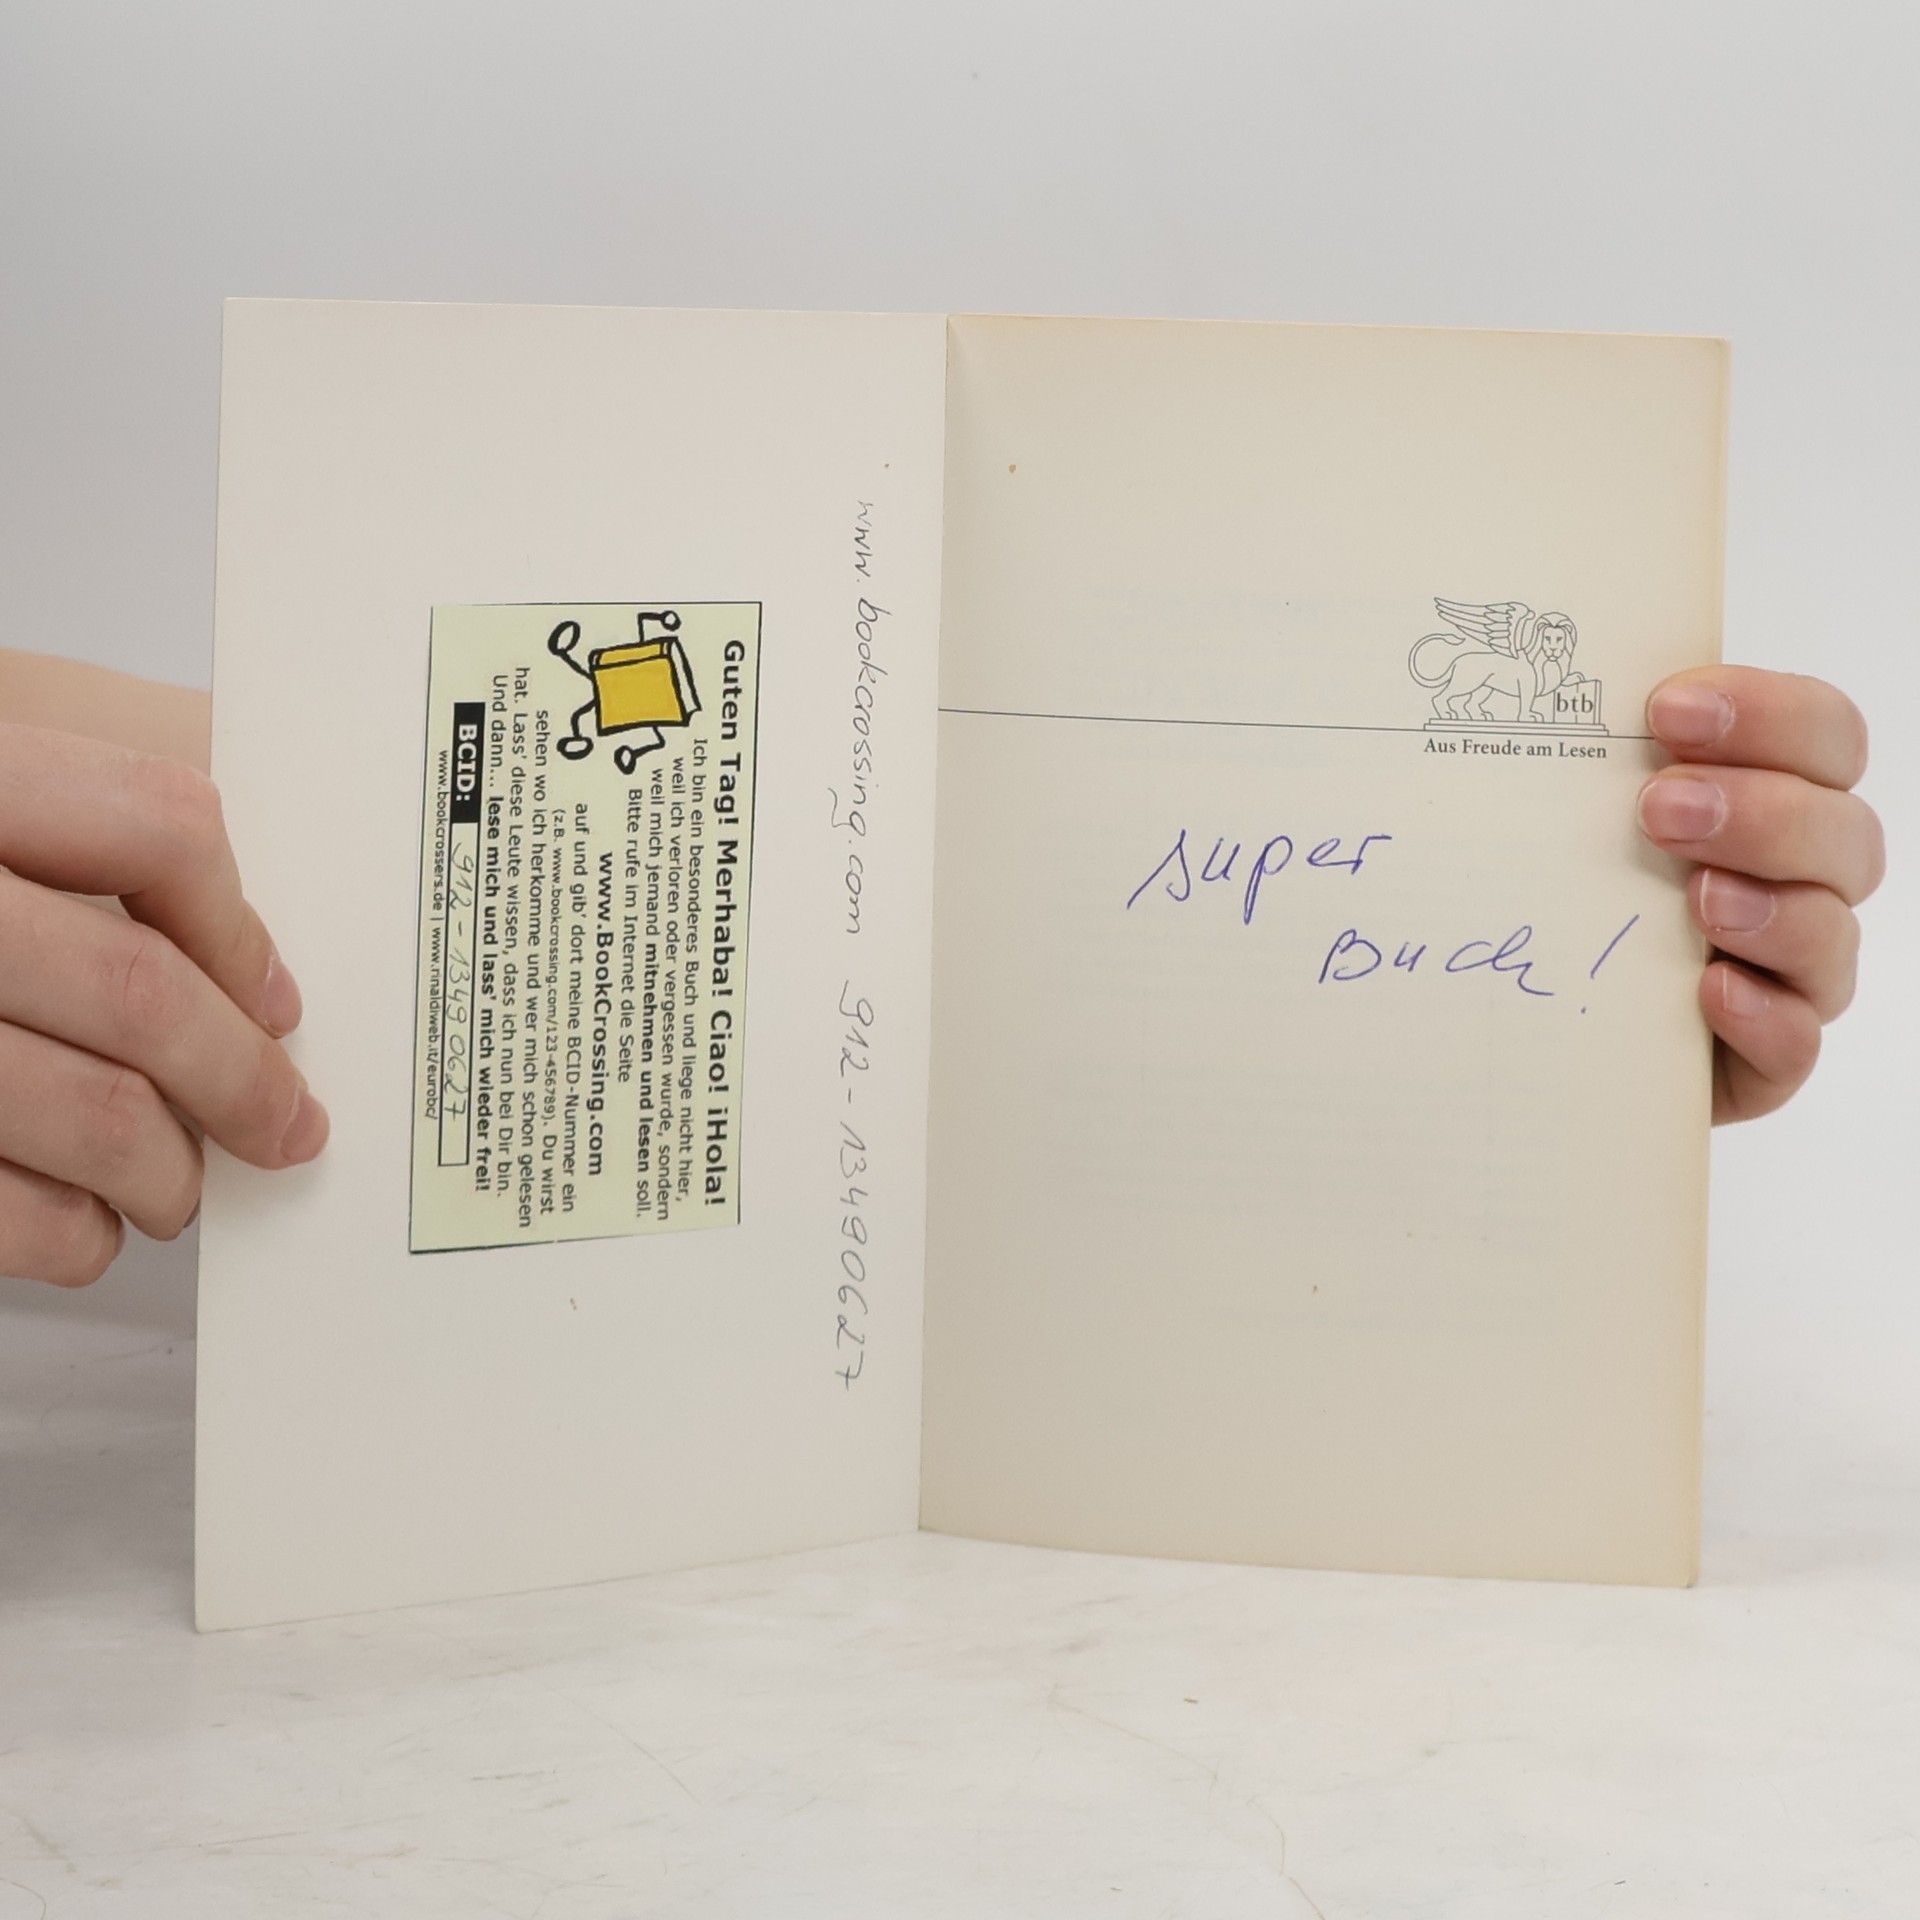 Guten Tag! Merhaba! Ciao! ¡Hola!
Ich bin ein besonderes Buch und liege nicht hier,
weil ich verloren oder vergessen wurde, sondern
weil mich jemand mitnehmen und lesen soll.
Bitte rufe im Internet die Seite
www.BookCrossing.com
auf und gib' dort meine BCID-Nummer ein
(z.B. www.bookcrossing.com/123-456789). Du wirst
sehen wo ich herkomme und wer mich schon gelesen
hat. Lass' diese Leute wissen, dass ich nun bei Dir bin.
Und dann... lese mich und lass' mich wieder frei!
BCID: 912-13490627
www.bookcrossers.de | www.rinaldiweb.it/eurobc/
www.bookcrossing.com 912-13490627
btb
Aus Freude am Lesen
super
Buch!